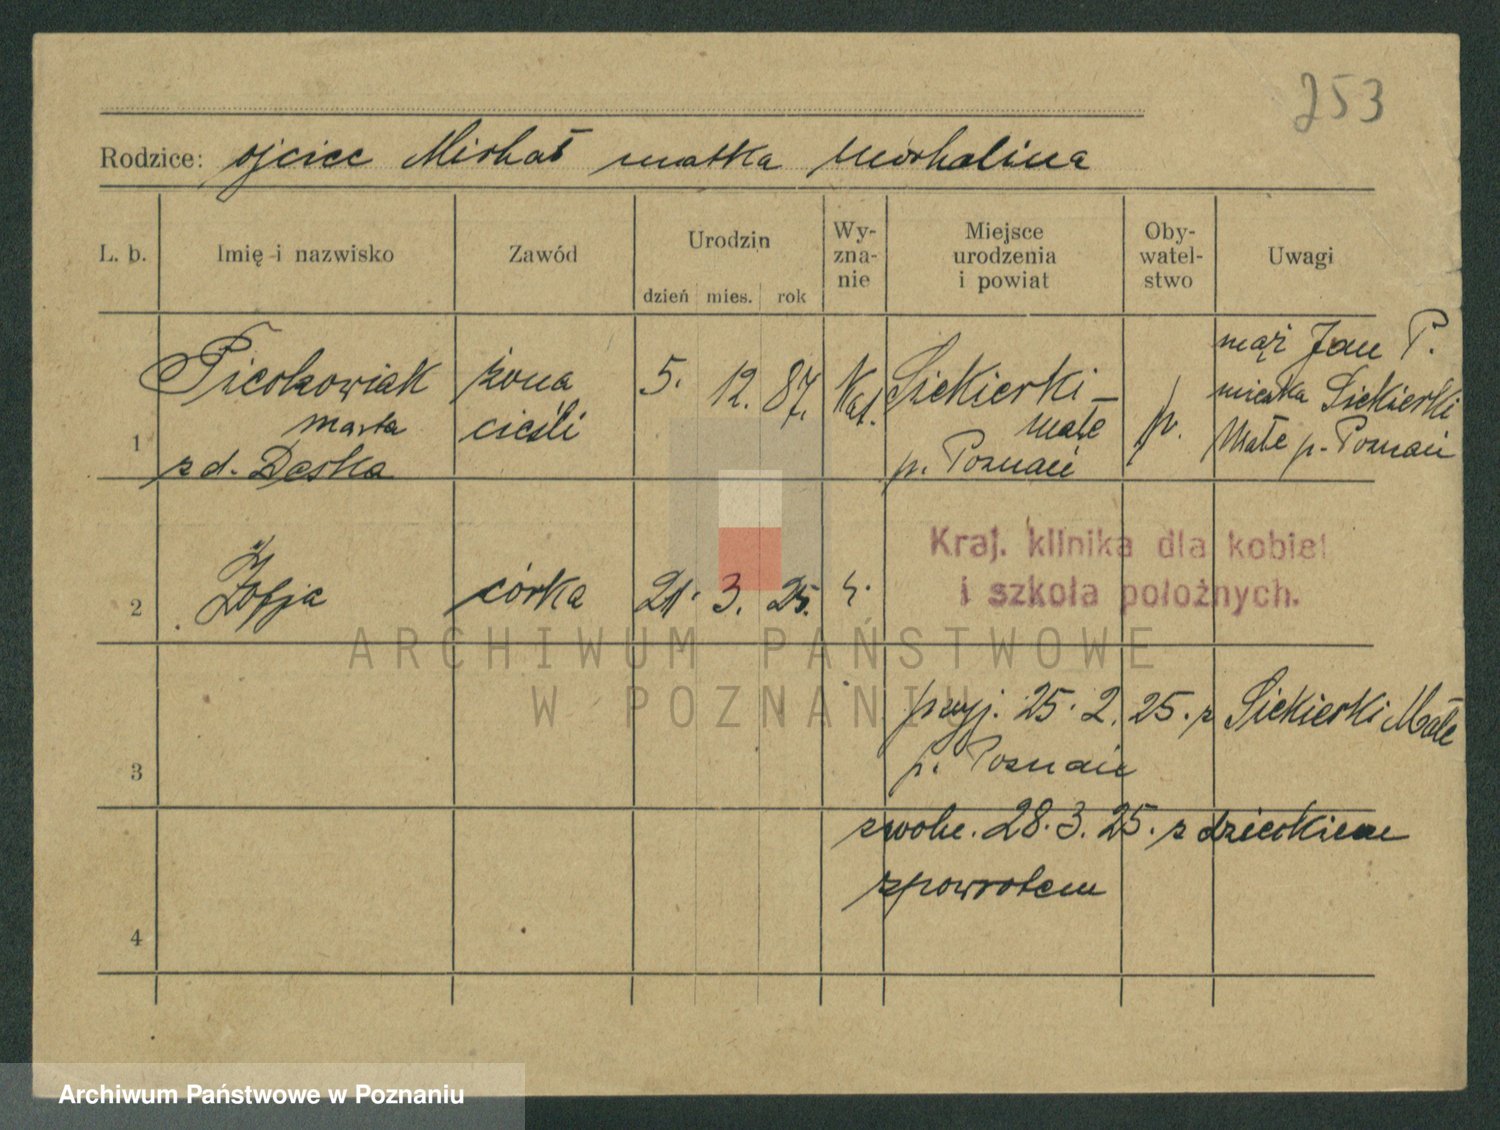 253
Rodzice: ojciec Michał matka Michalina
L. b. Imię i nazwisko Zawód Urodzin Wy-zna-nie Miejsce urodzenia i powiat Oby-watel-stwo Uwagi
dzień mies. rok
1 Marta z d. Deska żona cieśli 5. 12. 87. Kat. Siekierki Małe p. Poznań p. mąż Jan P. mieszka Siekierki Małe p. Poznań
2 Zofja córka 21. 3. 25.
Kraj. klinika dla kobiet
i szkoła położnych.
3 przyj. 25. 2. 25. z Siekierki Małe
p. Poznań
zwoln. 28. 3. 25. z dzieckiem
zpowrotem
4
ARCHIWUM PAŃSTWOWE
W POZNANIU
Archiwum Państwowe w Poznaniu